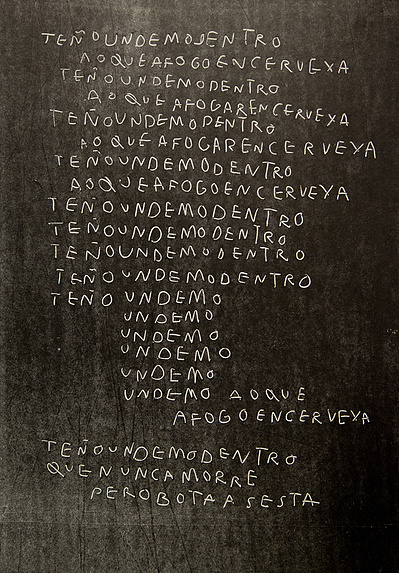 TEÑOUNDEMODENTRO
AOQUEAFOGOENCERVEXA
TEÑOUNDEMODENTRO
AOQUEAFOGARENCERVEYA
TEÑOUNDEMODENTRO
AOQUEAFOGARENCERVEYA
TEÑOUNDEMODENTRO
AOQUEAFOGOENCERVEYA
TEÑOUNDEMODENTRO
TEÑOUNDEMODENTRO
TEÑOUNDEMODENTRO
TEÑOUNDEMODENTRO
TEÑO UNDEMO
UNDEMO
UNDEMO
UNDEMO
UNDEMO
UNDEMO AOQUE
AFOGOENCERVEYA
TEÑOUNDEMODENTRO
QUENUNCAMORRE
PEROBOTAASESTA